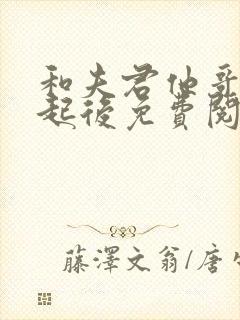 和夫君他哥
起後免費閱
藤澤文翁/唐